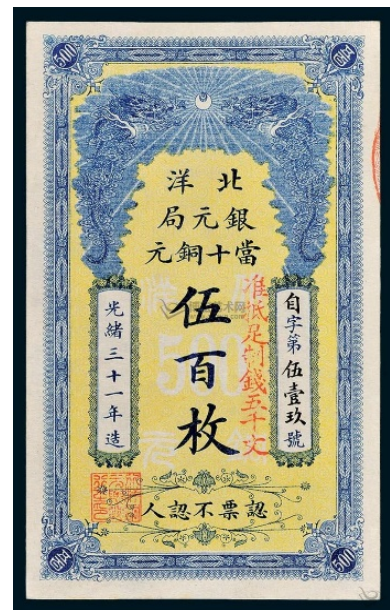 500
北洋
銀元局
當十銅元
伍百枚
准抵足制錢五千文
自字第伍壹玖號
光緒三十一年造
認票不認人
500
500